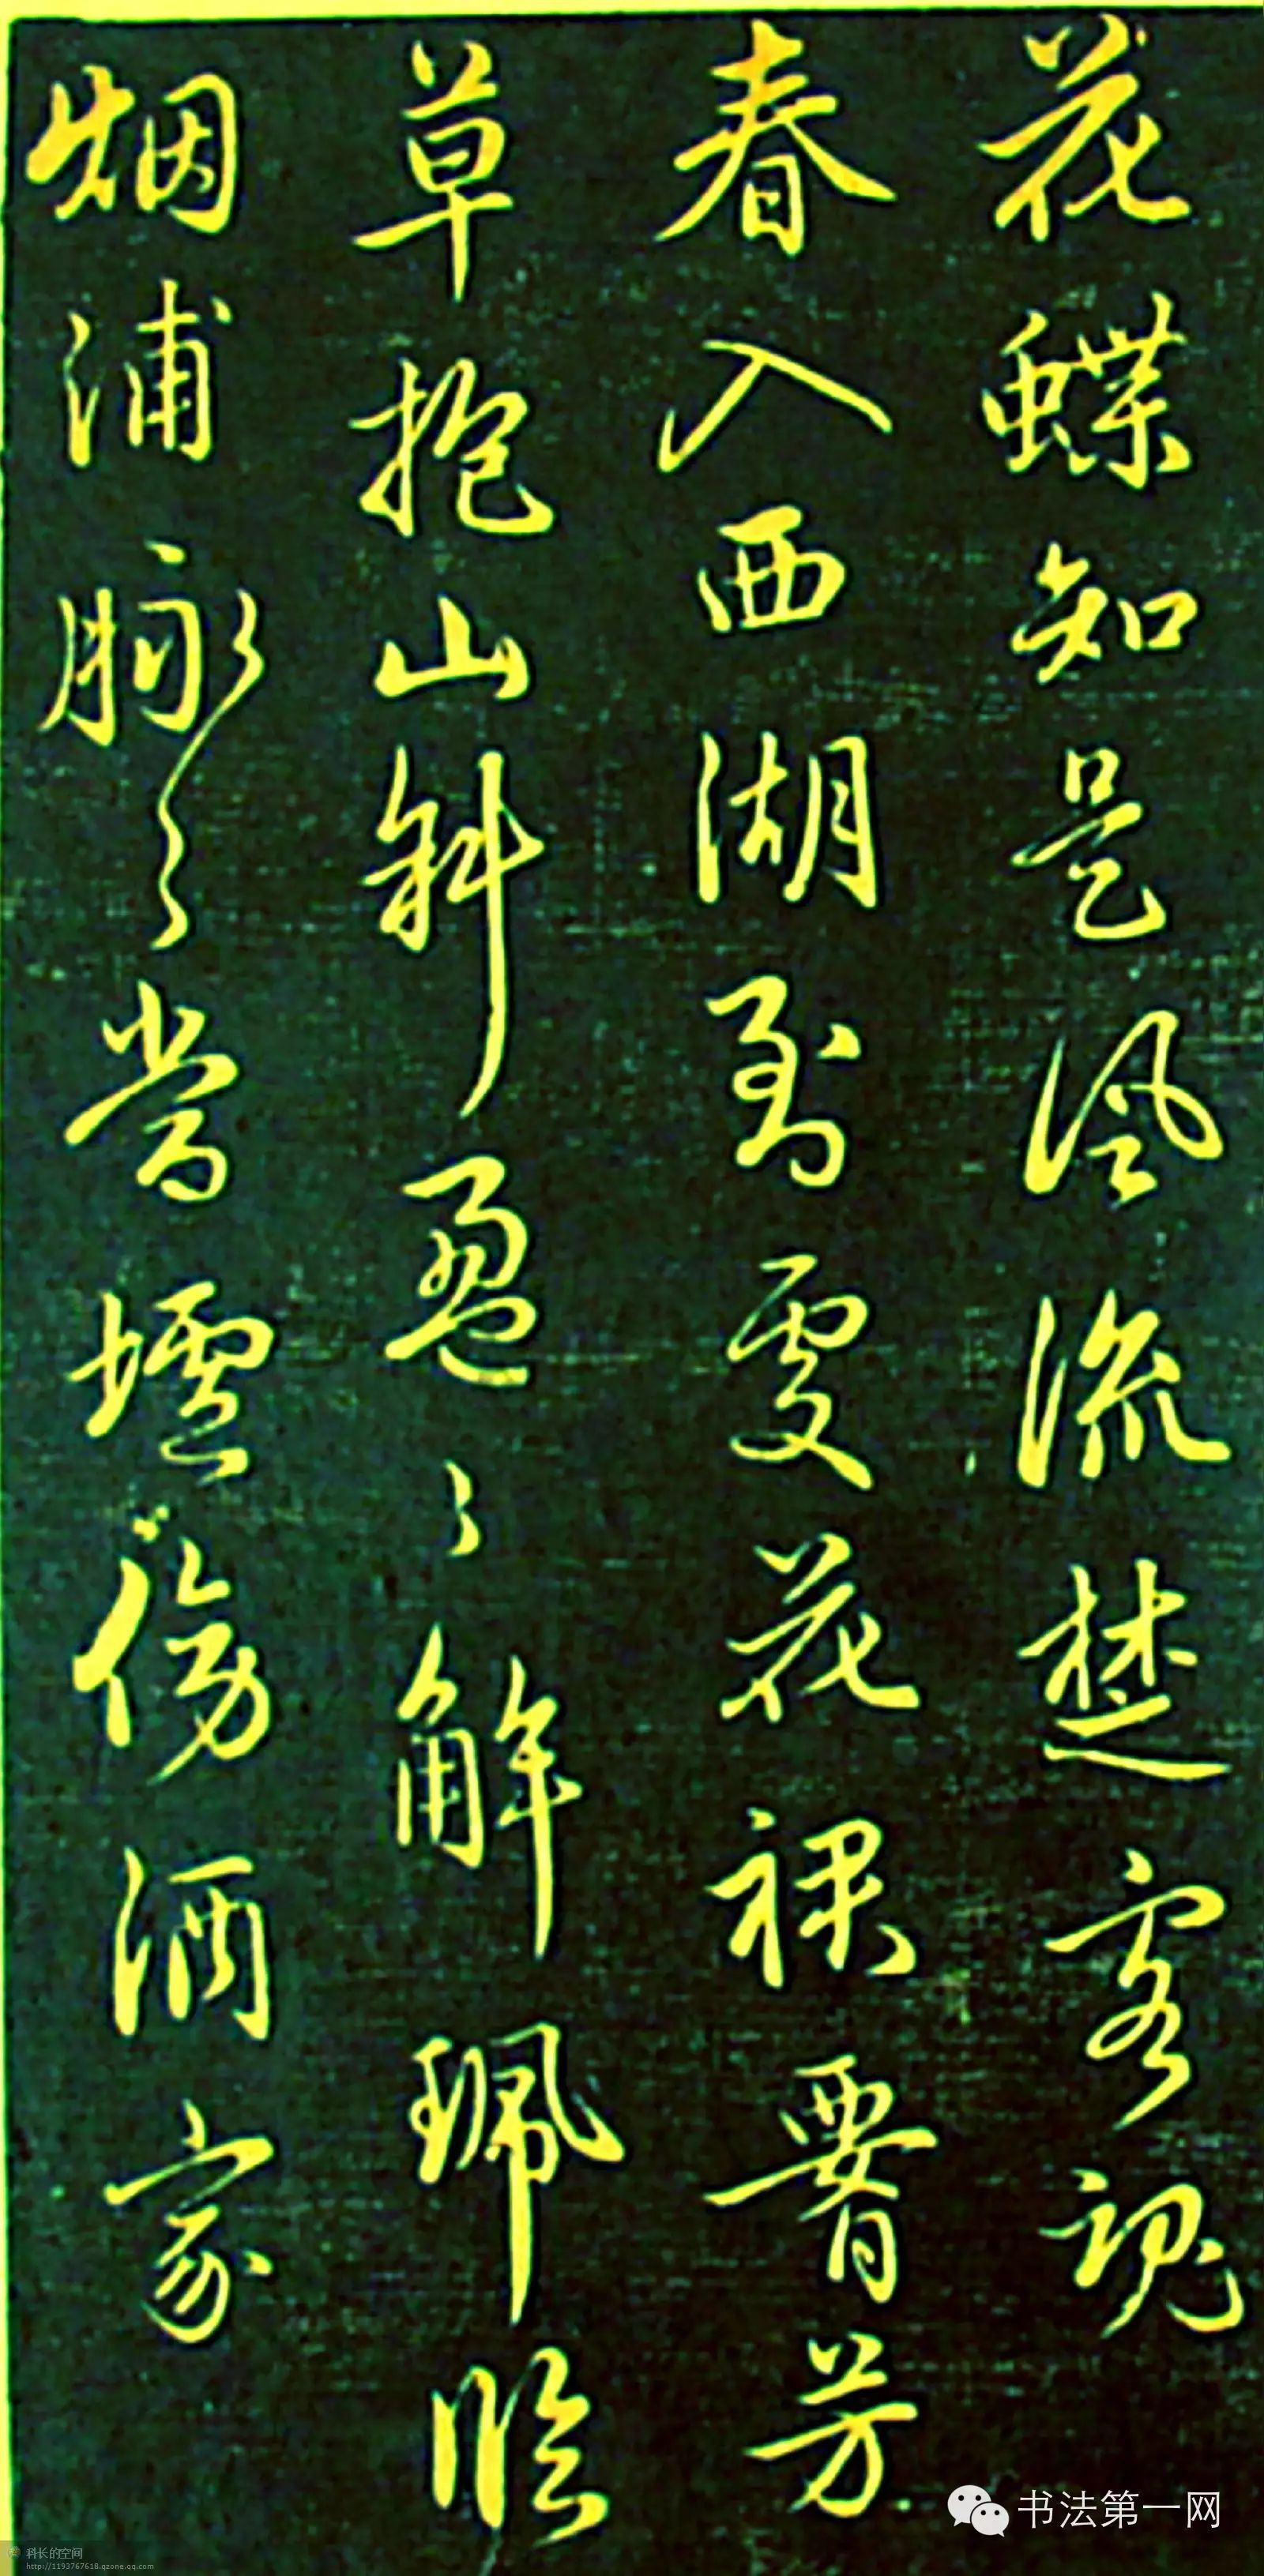 花蝶知是風流楚客魂
春入西湖到處花裙腰芳
草抱山斜盈々解珮臨
烟浦脉々當壚傍酒家
书法第一网
科长的空间
http://1193767618.qzone.qq.com